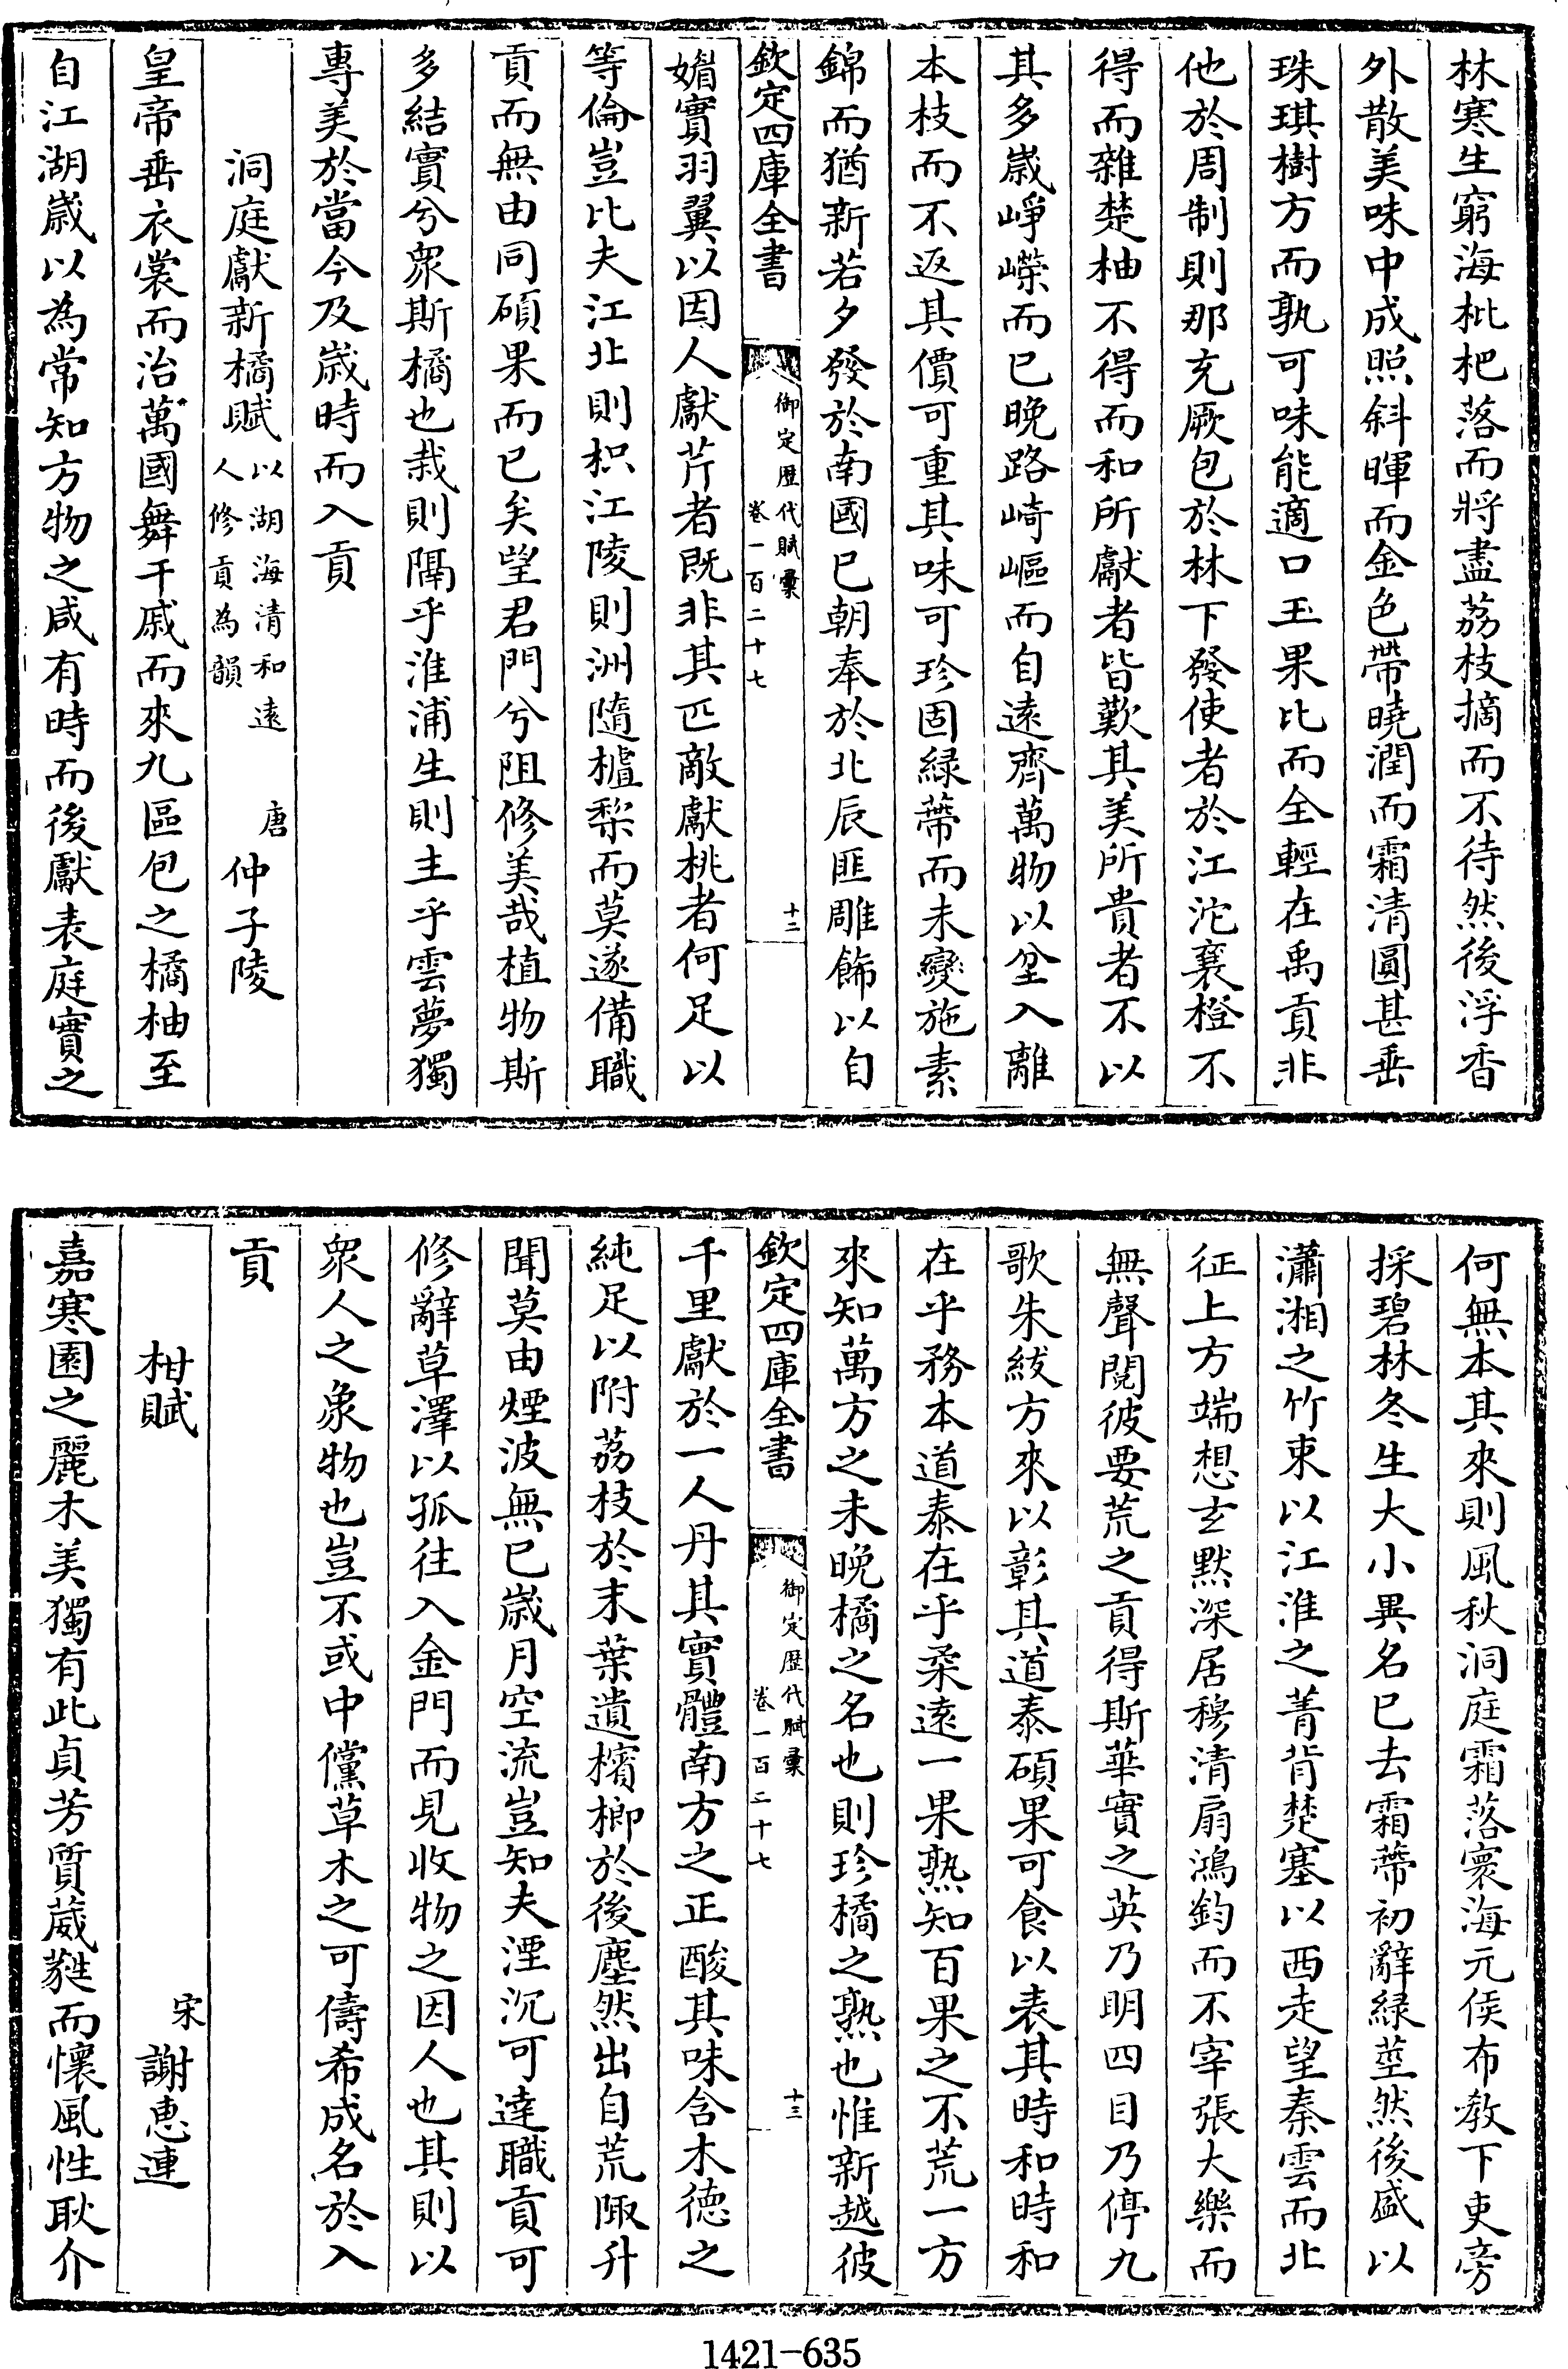 林寒生窮海枇杷落而將盡荔枝摘而不待然後浮香
外散美味中成照斜暉而金色帶曉潤而霜清圓甚垂
珠琪樹方而孰可味能適口玉果比而全輕在禹貢非
他於周制則那充厥包於林下發使者於江沱襄橙不
得而雜楚柚不得而和所獻者皆歎其美所貴者不以
其多嵗崢嶸而已晚路崎嶇而自遠齊萬物以坌入離
本枝而不返其價可重其味可珍固綠蔕而未變施素
錦而猶新若夕發於南國已朝奉於北辰匪雕飾以自
欽定四庫全書
御定歴代賦彙
卷一百二十七
十二
媚實羽翼以因人獻芹者既非其匹敵獻桃者何足以
等倫豈比夫江北則枳江陵則洲隨樝梨而莫遂備職
貢而無由同碩果而已矣望君門兮阻修美哉植物斯
多結實兮衆斯橘也栽則隔乎淮浦生則主乎雲夢獨
專美於當今及嵗時而入貢
洞庭獻新橘賦
以湖海清和遠
人修貢為韻
唐
仲子陵
皇帝垂衣裳而治萬國舞干戚而來九區包之橘柚至
自江湖嵗以為常知方物之咸有時而後獻表庭實之
何無本其來則風秋洞庭霜落寰海元侯布教下吏旁
採碧林冬生大小異名已去霜蔕初辭綠莖然後盛以
瀟湘之竹束以江淮之菁背楚塞以西走望秦雲而北
征上方端想玄默深居穆清扇鴻鈞而不宰張大樂而
無聲閱彼要荒之貢得斯華實之英乃明四目乃停九
歌朱紱方來以彰其道泰碩果可食以表其時和時和
在乎務本道泰在乎柔遠一果熟知百果之不荒一方
來知萬方之未晚橘之名也則珍橘之熟也惟新越彼
欽定四庫全書
御定歴代賦彙
卷一百二十七
十三
千里獻於一人丹其實體南方之正酸其味含木德之
純足以附荔枝於末葉遺檳榔於後塵然出自荒陬升
聞莫由煙波無已嵗月空流豈知夫湮沉可達職貢可
修辭草澤以孤往入金門而見收物之因人也其則以
衆人之象物也豈不或中儻草木之可儔希成名於入
貢
柑賦
宋
謝惠連
嘉寒園之麗木美獨有此貞芳質葳蕤而懷風性耿介
1421-635